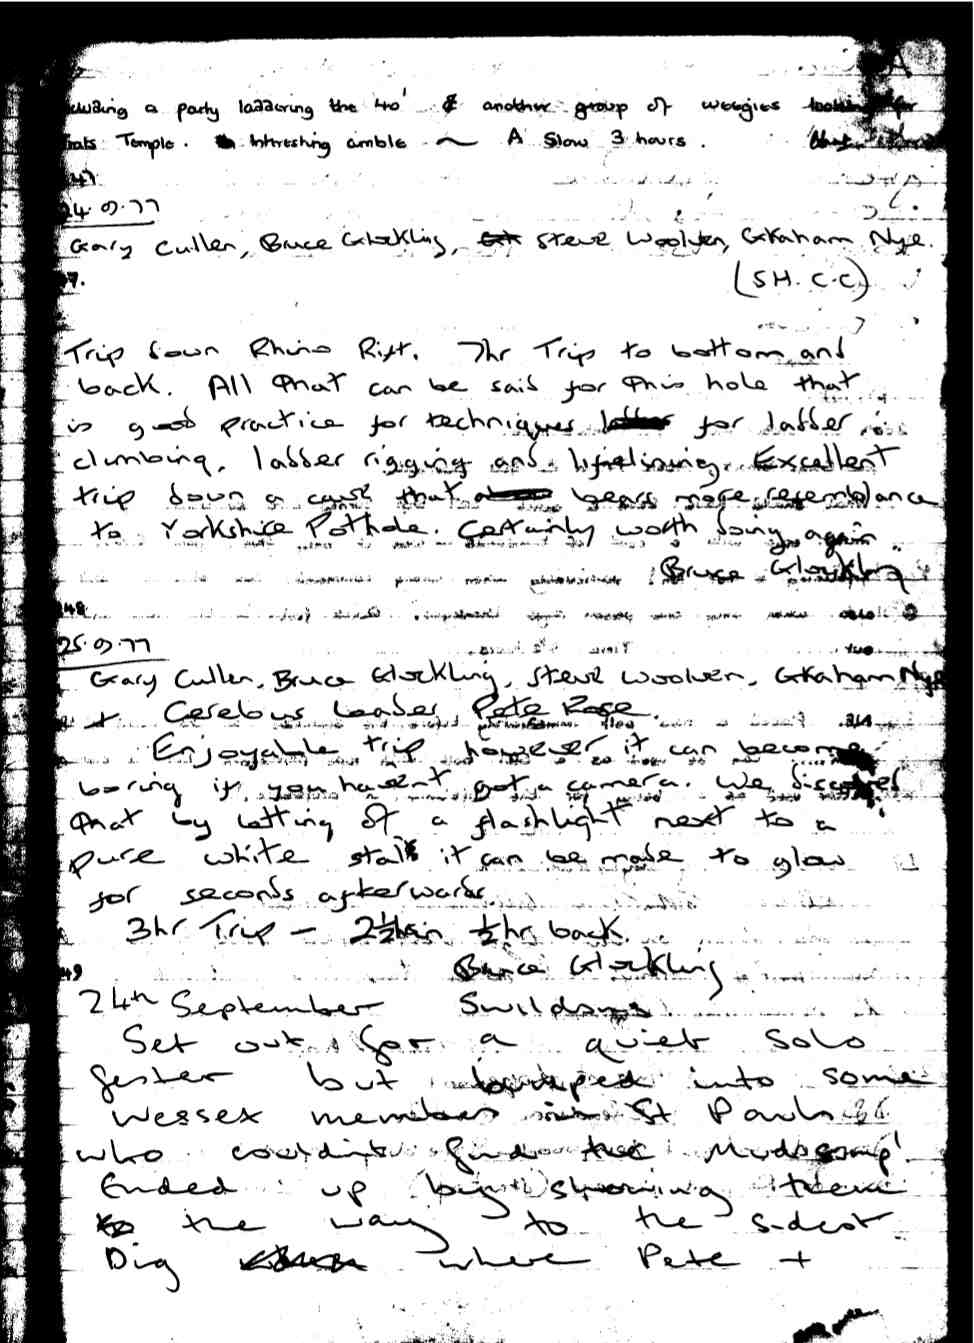 a party laddering the 40' & another group of weegies looking for
Temple. Interesting amble ~ A Slow 3 hours.
47
24.9.77
Gary Cullen, Bruce Glockling, Steve Woolven, Graham Nye.
(S.H.C.C)
Trip down Rhino Rift. 7hr Trip to bottom and
back. All that can be said for this hole that
is good practice for techniques for ladder
climbing, ladder rigging and lifelining. Excellent
trip down a cave that bears more resemblance
to Yorkshire Pothole. Certainly worth doing again.
Bruce Glockling
48
25.9.77
Gary Cullen, Bruce Glockling, Steve Woolven, Graham Nye
+ Cerebus Leader Pete Rose.
Enjoyable trip however it can become
boring if you havent got a camera. We discovered
that by letting of a flashlight next to a
pure white stal it can be made to glow
for seconds afterwards.
3hr Trip - 2½ in ½hr back.
Bruce Glockling
49
24th September Swildons
Set out for a quiet solo
fester but bumped into some
Wessex members in St Pauls
who couldnt find the Mudsump!
Ended up by showing them
the way to the Sidcot
Dig where Pete +